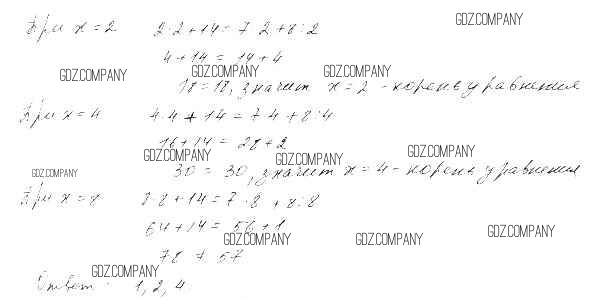 При x = 2 2·2+14=7·2+8:2 GDZ.COMPANY
4+14=14+4
GDZ.COMPANY GDZ.COMPANY GDZ.COMPANY
18=18, значит x=2 - корень уравнения
При x = 4 4·4+14=7·4+8:4
16+14=28+2
GDZ.COMPANY GDZ.COMPANY GDZ.COMPANY
30=30, значит x=4 - корень уравнения
GDZ.COMPANY
При x = 8 8·8+14=7·8+8:8
64+14=56+1
GDZ.COMPANY GDZ.COMPANY GDZ.COMPANY
78 ≠ 57
GDZ.COMPANY
Ответ: 1, 2, 4.